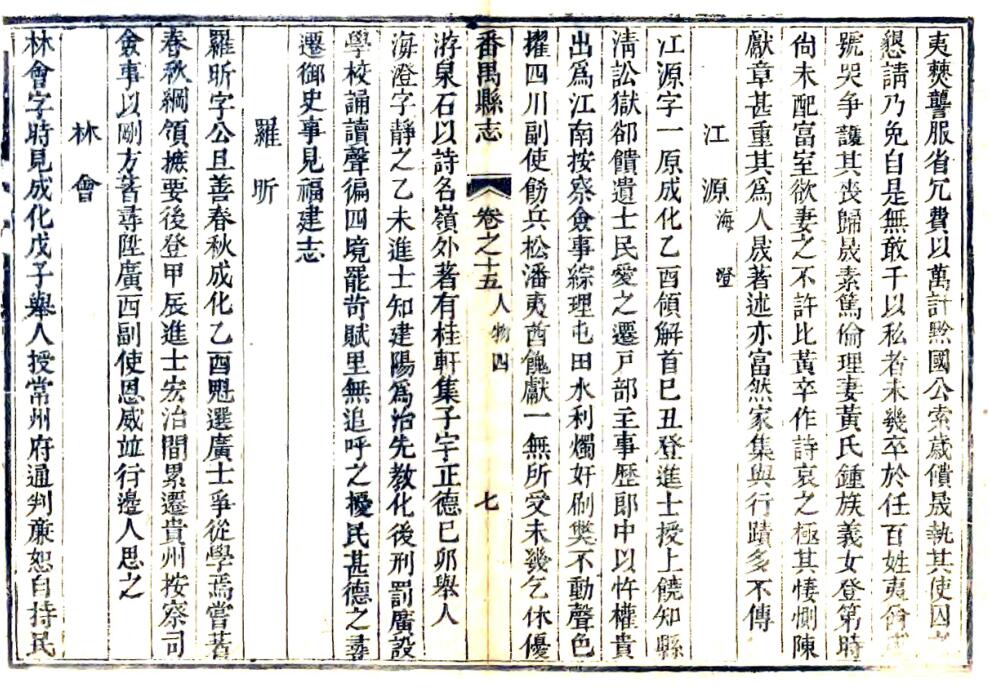 夷僰讋服省冗費以萬計黔國公索歲償晟執其使囚者
懇請乃免自是無敢干以私者未幾卒於任百姓夷酋咸
號哭爭護其喪歸晟素篤倫理妻黃氏鍾族義女登第時
尙未配富室欲妻之不許比黃卒作詩哀之極其悽惻陳
獻章甚重其爲人晟著述亦富然家集與行蹟多不傳
江源 海澄
江源字一原成化乙酉領解首巳丑登進士授上饒知縣
淸訟獄卻饋遺士民愛之遷戸部主事歷郎中以忤權貴
出爲江南按察僉事綜理屯田水利燭奸刷獘不動聲色
擢四川副使飭兵松潘夷酋餽獻一無所受未幾乞休優
番禺縣志 卷之十五 人物四 七
游泉石以詩名嶺外著有桂軒集子字正德巳卯舉人
海澄字靜之乙未進士知建陽爲治先教化後刑罰廣設
學校誦讀聲徧四境罷苛賦里無追呼之擾民甚德之尋
遷御史事見福建志
羅昕
羅昕字公旦善春秋成化乙酉魁選廣士爭從學焉嘗著
春秋綱領摭要後登甲辰進士宏治間累遷貴州按察司
僉事以剛方著尋陞廣西副使恩威竝行邊人思之
林會
林會字時見成化戊子舉人授常州府通判廉恕自持民